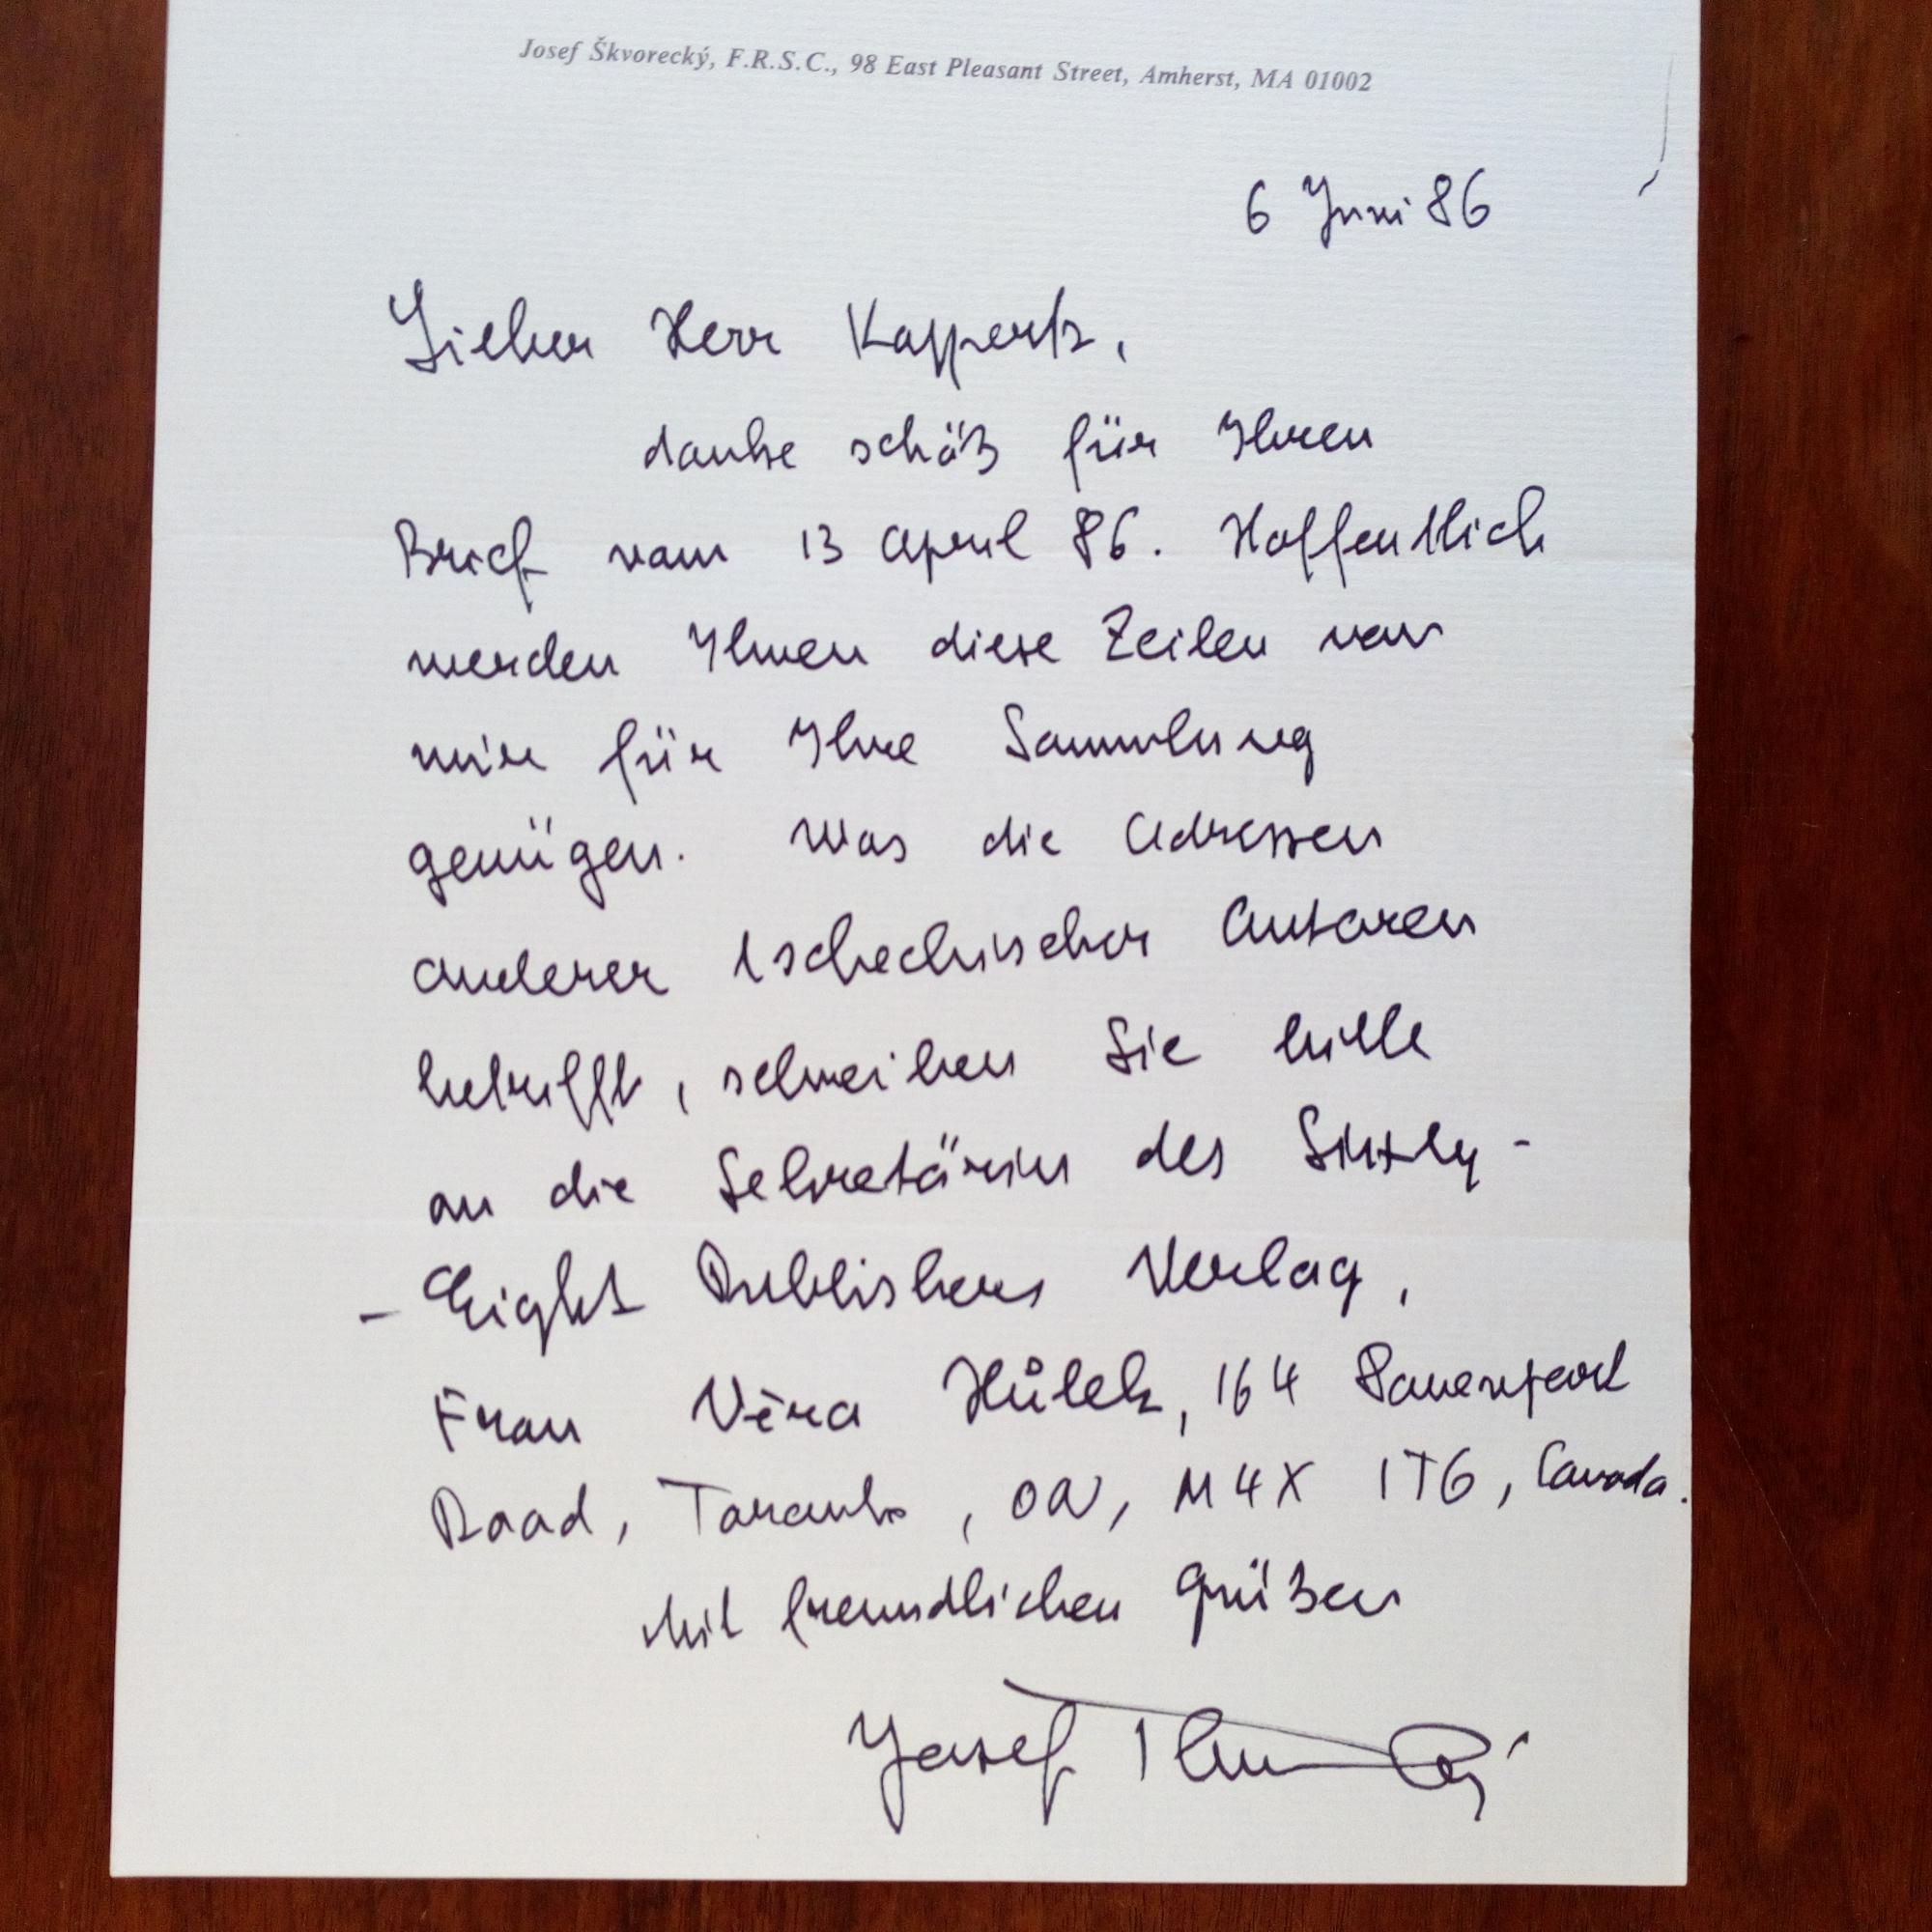 Josef Škvorecký, F.R.S.C., 98 East Pleasant Street, Amherst, MA 01002
6 Juni 86
Lieber Herr Kappertz,
danke schöß für Ihren
Brief vom 13 April 86. Hoffentlich
werden Ihnen diese Zeilen von
mir für Ihre Sammlung
genügen. Was die Adressen
anderer tschechischer Autoren
betrifft, schreiben Sie bitte
an die Sekretärin des Sixty-
- Eight Publishers Verlag,
Frau Věra Hůlek, 164 Davenport
Road, Toronto, ON, M4X 1T6, Canada.
Mit freundlichen Grüßen
Josef Škvorecký